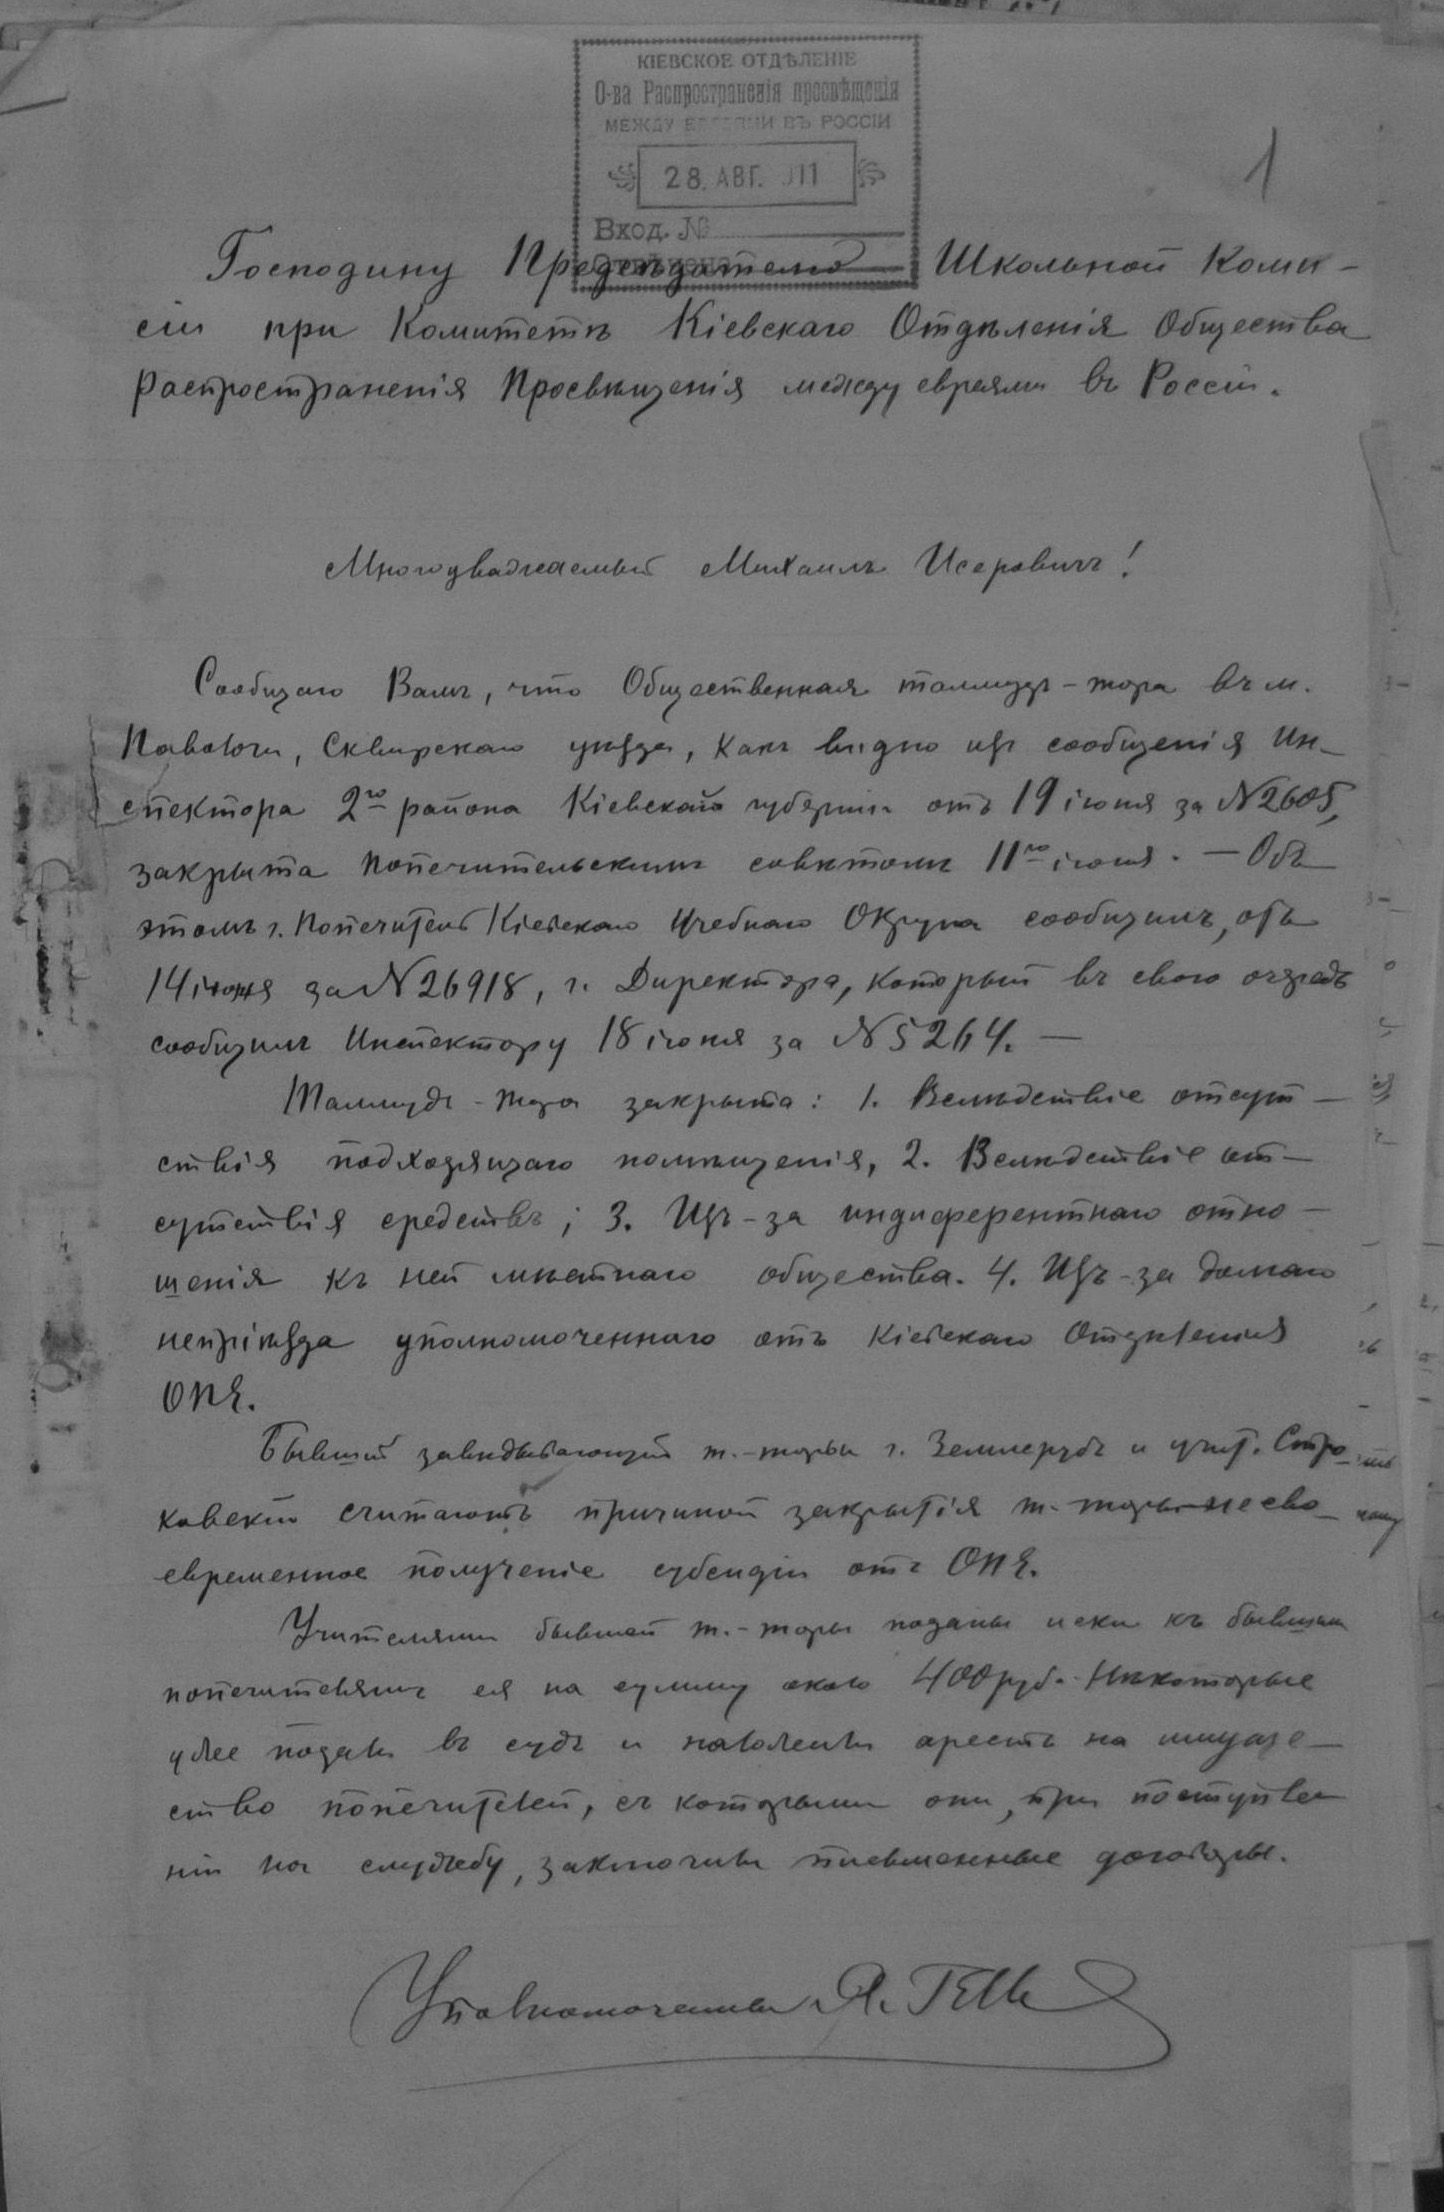 КІЕВСКОЕ ОТДѢЛЕНІЕ
О-ва Распространенія просвѣщенія
МЕЖДУ ЕВРЕЯМИ ВЪ РОССІИ
28. АВГ. 911
Вход. №
1
Господину Предсѣдателю Школьной Коми-
сіи при Комитетѣ Кіевскаго Отдѣленія Общества
Распространенія Просвѣщенія между евреями въ Россіи.
Многоуважаемый Михаилъ Исеровичъ!
Сообщаю Вамъ, что Общественная талмудъ-тора въ м.
Паволочи, Сквирскаго уѣзда, какъ видно изъ сообщенія Ин-
спектора 2го района Кіевской губерніи отъ 19 іюня за №2605,
закрыта Попечительскимъ совѣтомъ 11го іюня. — Объ
этомъ г. Попечитель Кіевскаго Учебнаго Округа сообщилъ, отъ
14 іюня за №26918, г. Директора, который въ свою очередь
сообщилъ Инспектору 18 іюня за №5264. —
Талмудъ-тора закрыта: 1. Вслѣдствіе отсут-
ствія подходящаго помѣщенія, 2. Вслѣдствіе от-
сутствія средствъ; 3. Изъ-за индиферентнаго отно-
шенія къ ней мѣстнаго общества. 4. Изъ-за долгаго
непріѣзда уполномоченнаго отъ Кіевскаго Отдѣленія
ОПЕ.
Бывшій завѣдывающій т.-торы г. Земмерудъ и учит. Стро-
ковскій считаютъ причиной закрытія т.-торы несво-
евременное полученіе субсидіи отъ ОПЕ.
Учителями бывшей т.-торы поданы иски къ бывшимъ
попечителямъ ея на сумму около 400 руб. Нѣкоторые
уже подали въ судъ и наложили арестъ на имуще-
ство попечителей, съ которыми они, при поступле-
ніи на службу, заключили письменные договоры.
Уполномоченный А. Гелль